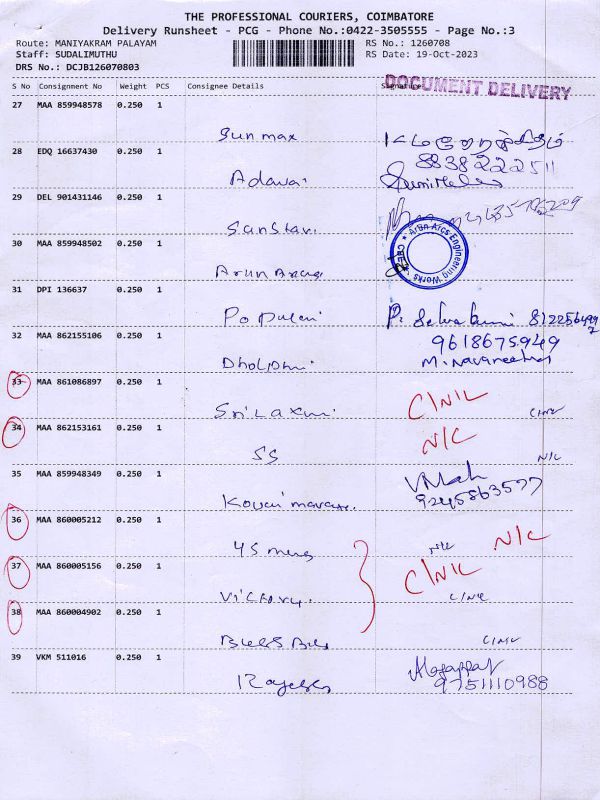 THE PROFESSIONAL COURIERS, COIMBATORE
Delivery Runsheet - PCG - Phone No.:0422-3505555 - Page No.:3
Route: MANIYAKRAM PALAYAM RS No.: 1260708
Staff: SUDALIMUTHU RS Date: 19-Oct-2023
DRS No.: DCJB126070803
DOCUMENT DELIVERY
S No Consignment No Weight PCS Consignee Details Signature
27 MAA 859948578 0.250 1
Sunmax
28 EDQ 16637430 0.250 1
8838222511
Adawai
29 DEL 901431146 0.250 1
Sanstavi
30 MAA 859948502 0.250 1
Arun Arcs Engineering Works
Arun Arcs
31 DPI 136637 0.250 1
Popular P. Selvakumi
32 MAA 862155106 0.250 1
9618675949
Dholphi M. Navaneetha
33 MAA 861086897 0.250 1
C/NIL
Sri Laxmi
34 MAA 862153161 0.250 1
N/C
SS N/C
35 MAA 859948349 0.250 1
9245863577
Kovai
36 MAA 860005212 0.250 1
N/C
4S
37 MAA 860005156 0.250 1
C/NIL
Victory
38 MAA 860004902 0.250 1
39 VKM 511016 0.250 1
9751110988